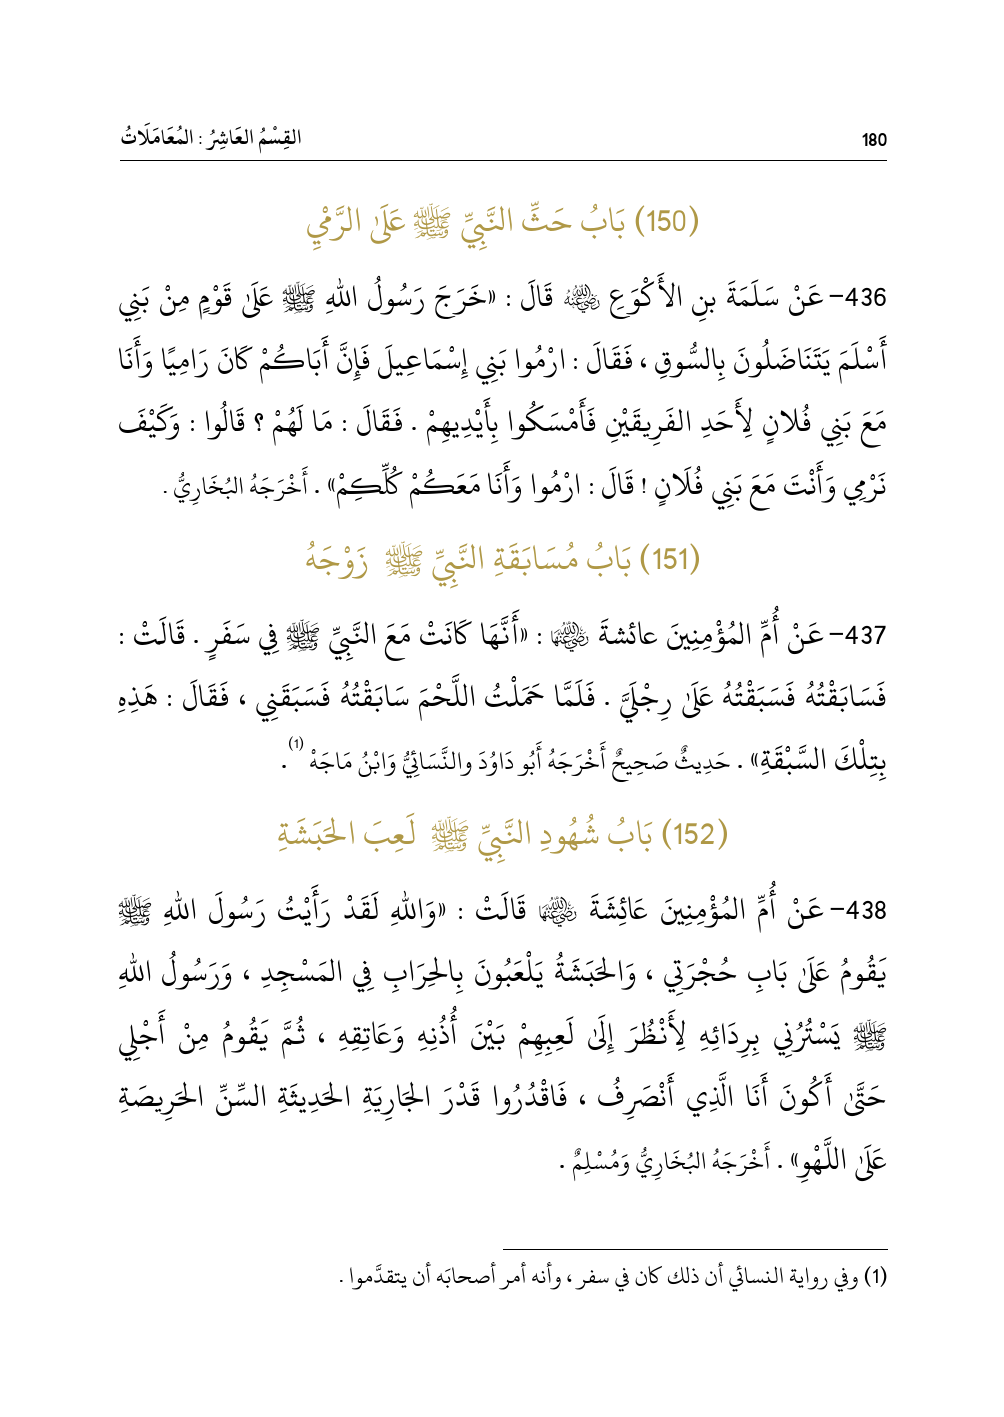 180
القِسْمُ العَاشِرُ : المُعَامَلَاتُ
(150) بَابُ حَثِّ النَّبِيِّ ﷺ عَلَىٰ الرَّمْيِ
436– عَنْ سَلَمَةَ بنِ الأَكْوَعِ رضي الله عنه قَالَ : «خَرَجَ رَسُولُ اللهِ ﷺ عَلَىٰ قَوْمٍ مِنْ بَنِي
أَسْلَمَ يَتَنَاضَلُونَ بِالسُّوقِ ، فَقَالَ : ارْمُوا بَنِي إِسْمَاعِيلَ فَإِنَّ أَبَاكُمْ كَانَ رَامِيًا وَأَنَا
مَعَ بَنِي فُلانٍ لِأَحَدِ الفَرِيقَيْنِ فَأَمْسَكُوا بِأَيْدِيهِمْ . فَقَالَ : مَا لَهُمْ ؟ قَالُوا : وَكَيْفَ
نَرْمِي وَأَنْتَ مَعَ بَنِي فُلَانٍ ! قَالَ : ارْمُوا وَأَنَا مَعَكُمْ كُلِّكِمْ» . أَخْرَجَهُ البُخَارِيُّ .
(151) بَابُ مُسَابَقَةِ النَّبِيِّ ﷺ زَوْجَهُ
437– عَنْ أُمِّ المُؤْمِنِينَ عائشةَ رضي الله عنها : «أَنَّهَا كَانَتْ مَعَ النَّبِيِّ ﷺ فِي سَفَرٍ . قَالَتْ :
فَسَابَقْتُهُ فَسَبَقْتُهُ عَلَىٰ رِجْلَيَّ . فَلَمَّا حَمَلْتُ اللَّحْمَ سَابَقْتُهُ فَسَبَقَنِي ، فَقَالَ : هَذِهِ
بِتِلْكَ السَّبْقَةِ» . حَدِيثٌ صَحِيحٌ أَخْرَجَهُ أَبُو دَاوُدَ والنَّسَائِيُّ وَابْنُ مَاجَهْ (1) .
(152) بَابُ شُهُودِ النَّبِيِّ ﷺ لَعِبَ الحَبَشَةِ
438– عَنْ أُمِّ المُؤْمِنِينَ عَائِشَةَ رضي الله عنها قَالَتْ : «وَاللهِ لَقَدْ رَأَيْتُ رَسُولَ اللهِ ﷺ
يَقُومُ عَلَىٰ بَابِ حُجْرَتِي ، وَالحَبَشَةُ يَلْعَبُونَ بِالحِرَابِ فِي المَسْجِدِ ، وَرَسُولُ اللهِ
ﷺ يَسْتُرُنِي بِرِدَائِهِ لِأَنْظُرَ إِلَىٰ لَعِبِهِمْ بَيْنَ أُذُنِهِ وَعَاتِقِهِ ، ثُمَّ يَقُومُ مِنْ أَجْلِي
حَتَّىٰ أَكُونَ أَنَا الَّذِي أَنْصَرِفُ ، فَاقْدُرُوا قَدْرَ الجَارِيَةِ الحَدِيثَةِ السِّنِّ الحَرِيصَةِ
عَلَىٰ اللَّهْوِ» . أَخْرَجَهُ البُخَارِيُّ وَمُسْلِمٌ .
(1) وفي رواية النسائي أن ذلك كان في سفر ، وأنه أمر أصحابَه أن يتقدَّموا .